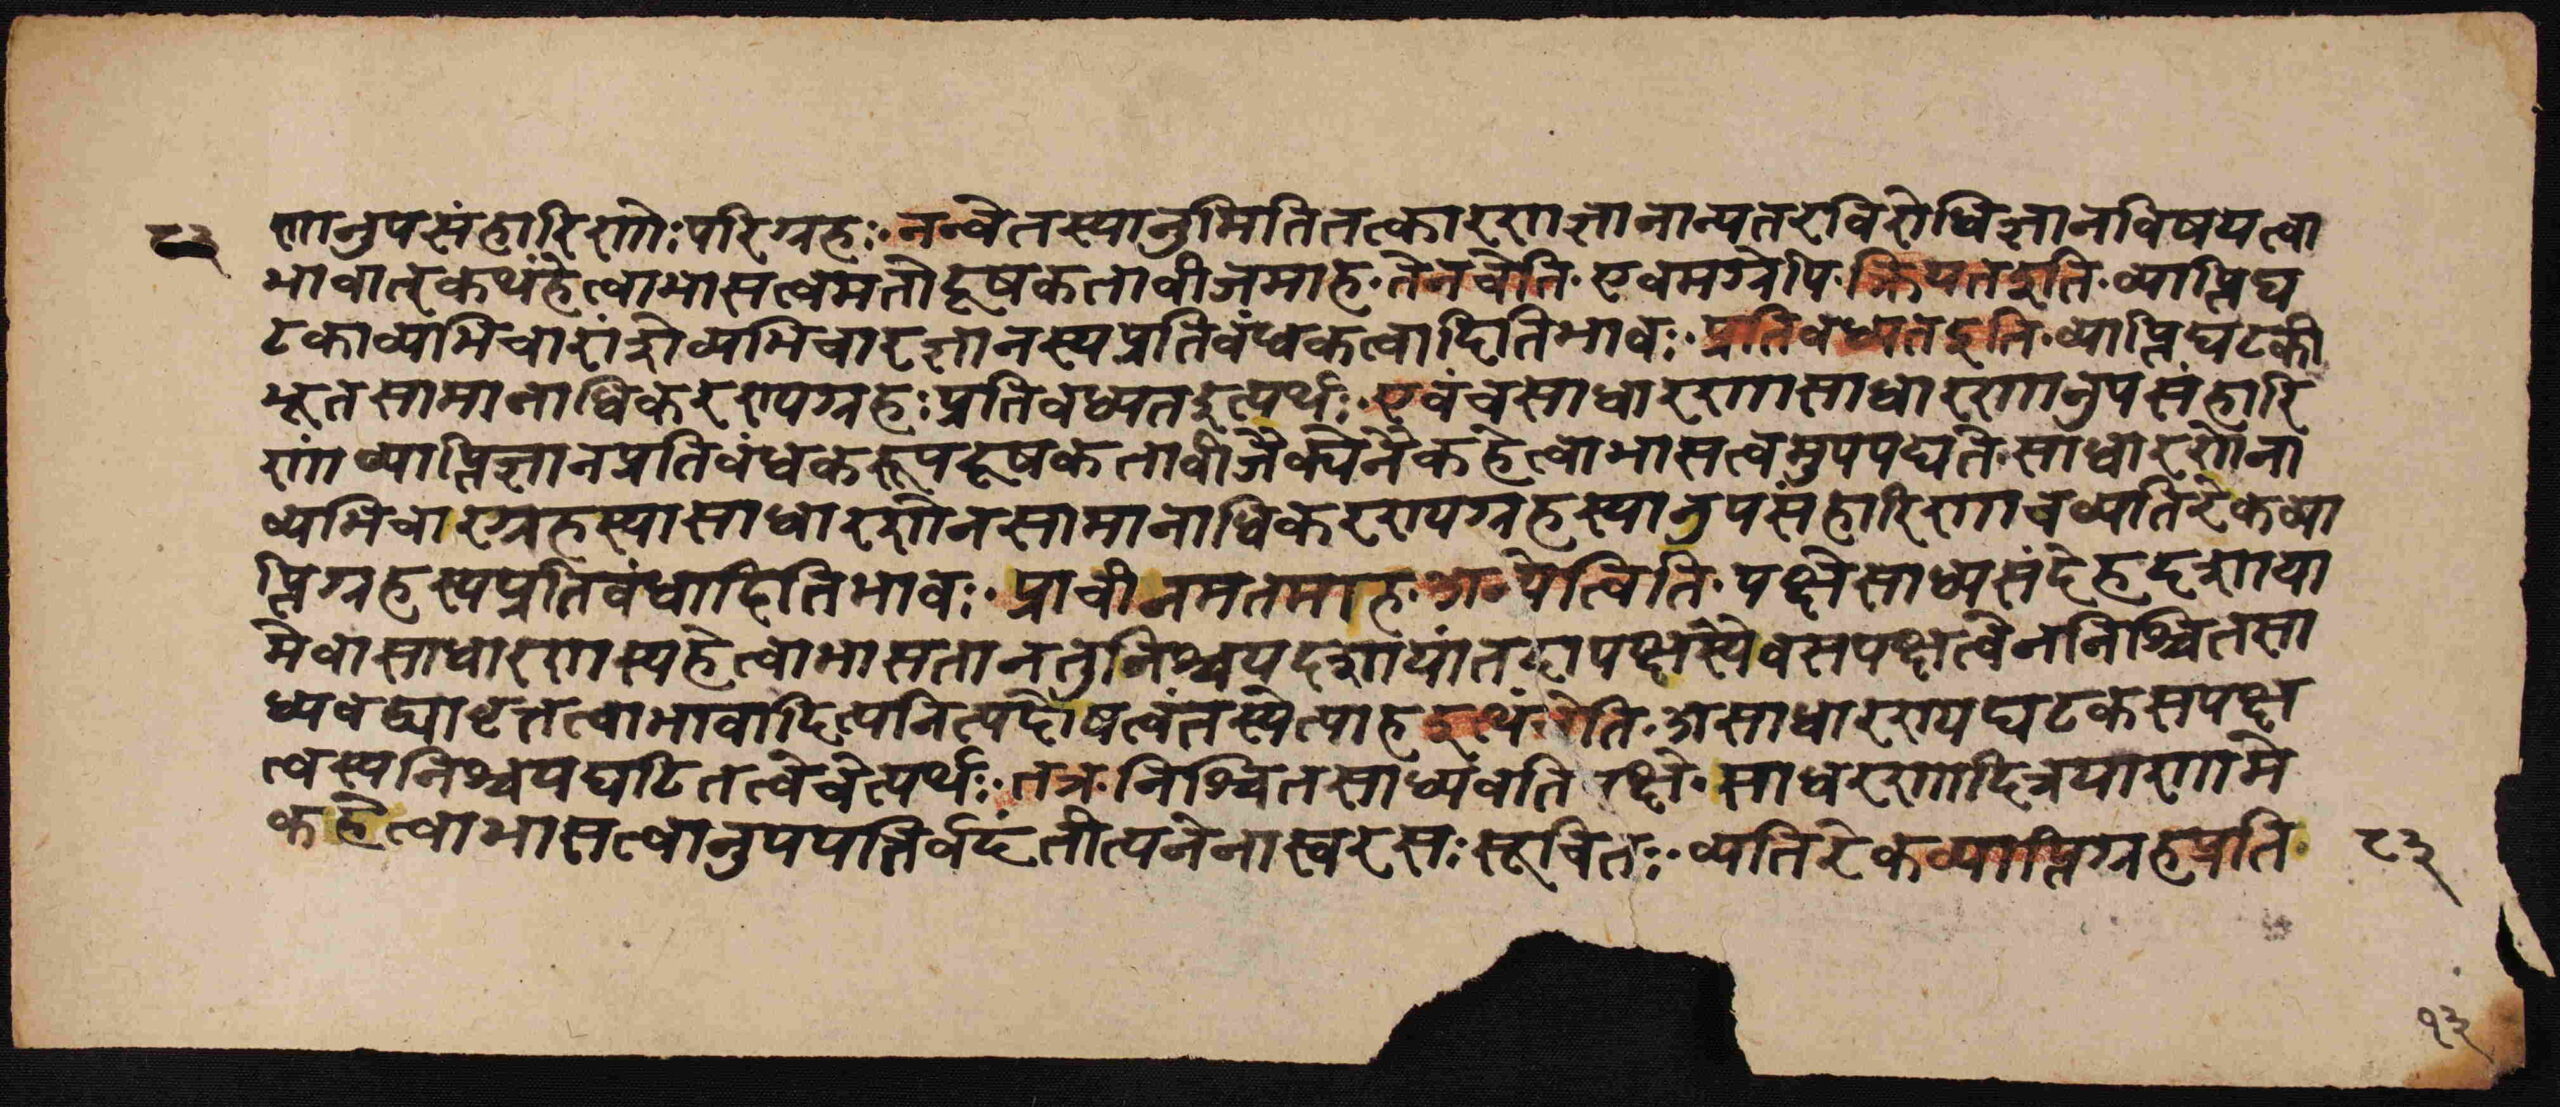 ८३ णानुपसंहारिणोः परिग्रहः॰ नन्वेतस्यानुमितितत्कारणज्ञानान्यतरविरोधिज्ञानविषयत्वा
भावात्कथं हेत्वाभासत्वमतो दूषकतावीजमाह॰ तेन चेति॰ एवमग्रेपि॰ क्रियत इति॰ व्याप्तिघ
टकाव्यभिचारांशे व्यभिचारज्ञानस्य प्रतिवंधकत्वादिति भावः॰ प्रतिवध्यत इति॰ व्याप्तिघटकी
भूतसामानाधिकरण्यग्रहः प्रतिवध्यत इत्यर्थः॰ एवं च साधारणासाधारणानुपसंहारि
णां व्याप्तिज्ञानप्रतिवंधकरूपदूषकतावीजैक्येनैकहेत्वाभासत्वमुपपद्यते॰ साधारणेना
व्यभिचारग्रहस्यासाधारणेन सामानाधिकरण्यग्रहस्यानुपसंहारिणा च व्यतिरेकव्या
प्तिग्रहस्य प्रतिवंधादिति भावः॰ प्राचीनमतमाह॰ अन्ये त्विति॰ पक्षे साध्यसंदेहदशाया
मेवासाधारणस्य हेत्वाभासता न तु निश्चयदशायां तदा पक्षस्यैव सपक्षत्वेन निश्चितसा
ध्यवद्व्यावृत्तत्वाभावादित्यनित्यदोषत्वं तस्येत्याह इत्थं चेति॰ असाधारण्यघटकसपक्ष
त्वस्य निश्चयघटितत्वे चेत्यर्थः॰ तत्र॰ निश्चितसाध्यवति क्षे॰ साधरणादित्रयाणामे
कहेत्वाभासत्वानुपपत्तिर्वदंतीत्यनेनास्वरसः सूचितः॰ व्यतिरेकव्याप्तिग्रहप्रति॰ ८३
१३